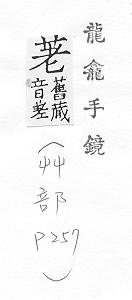 龍龕手鏡
荖
舊藏
音差
（艸部
P257）